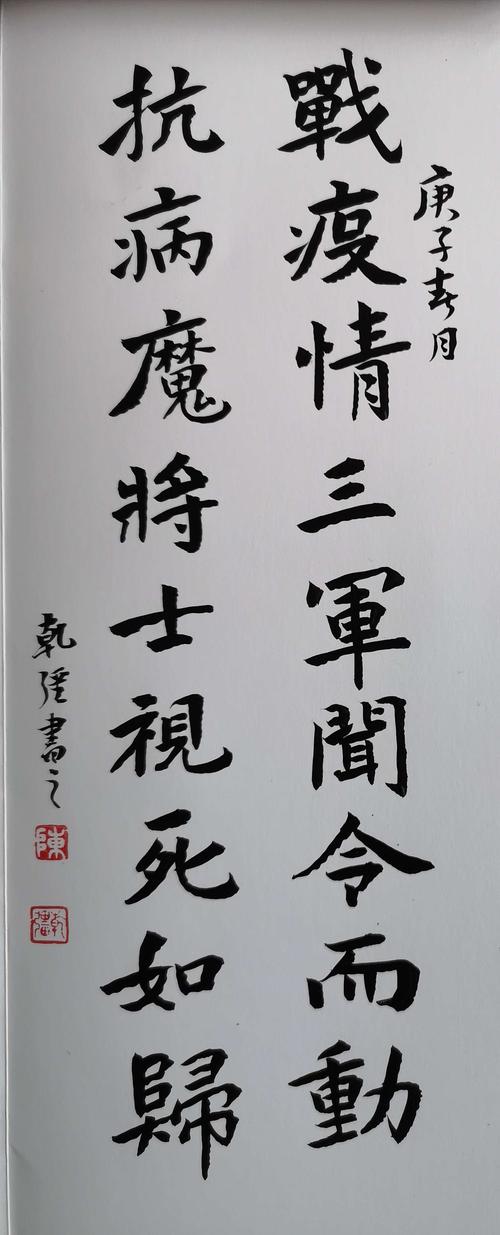 庚子春月
戰疫情三軍聞令而動
抗病魔將士視死如歸
乾强書之
陳